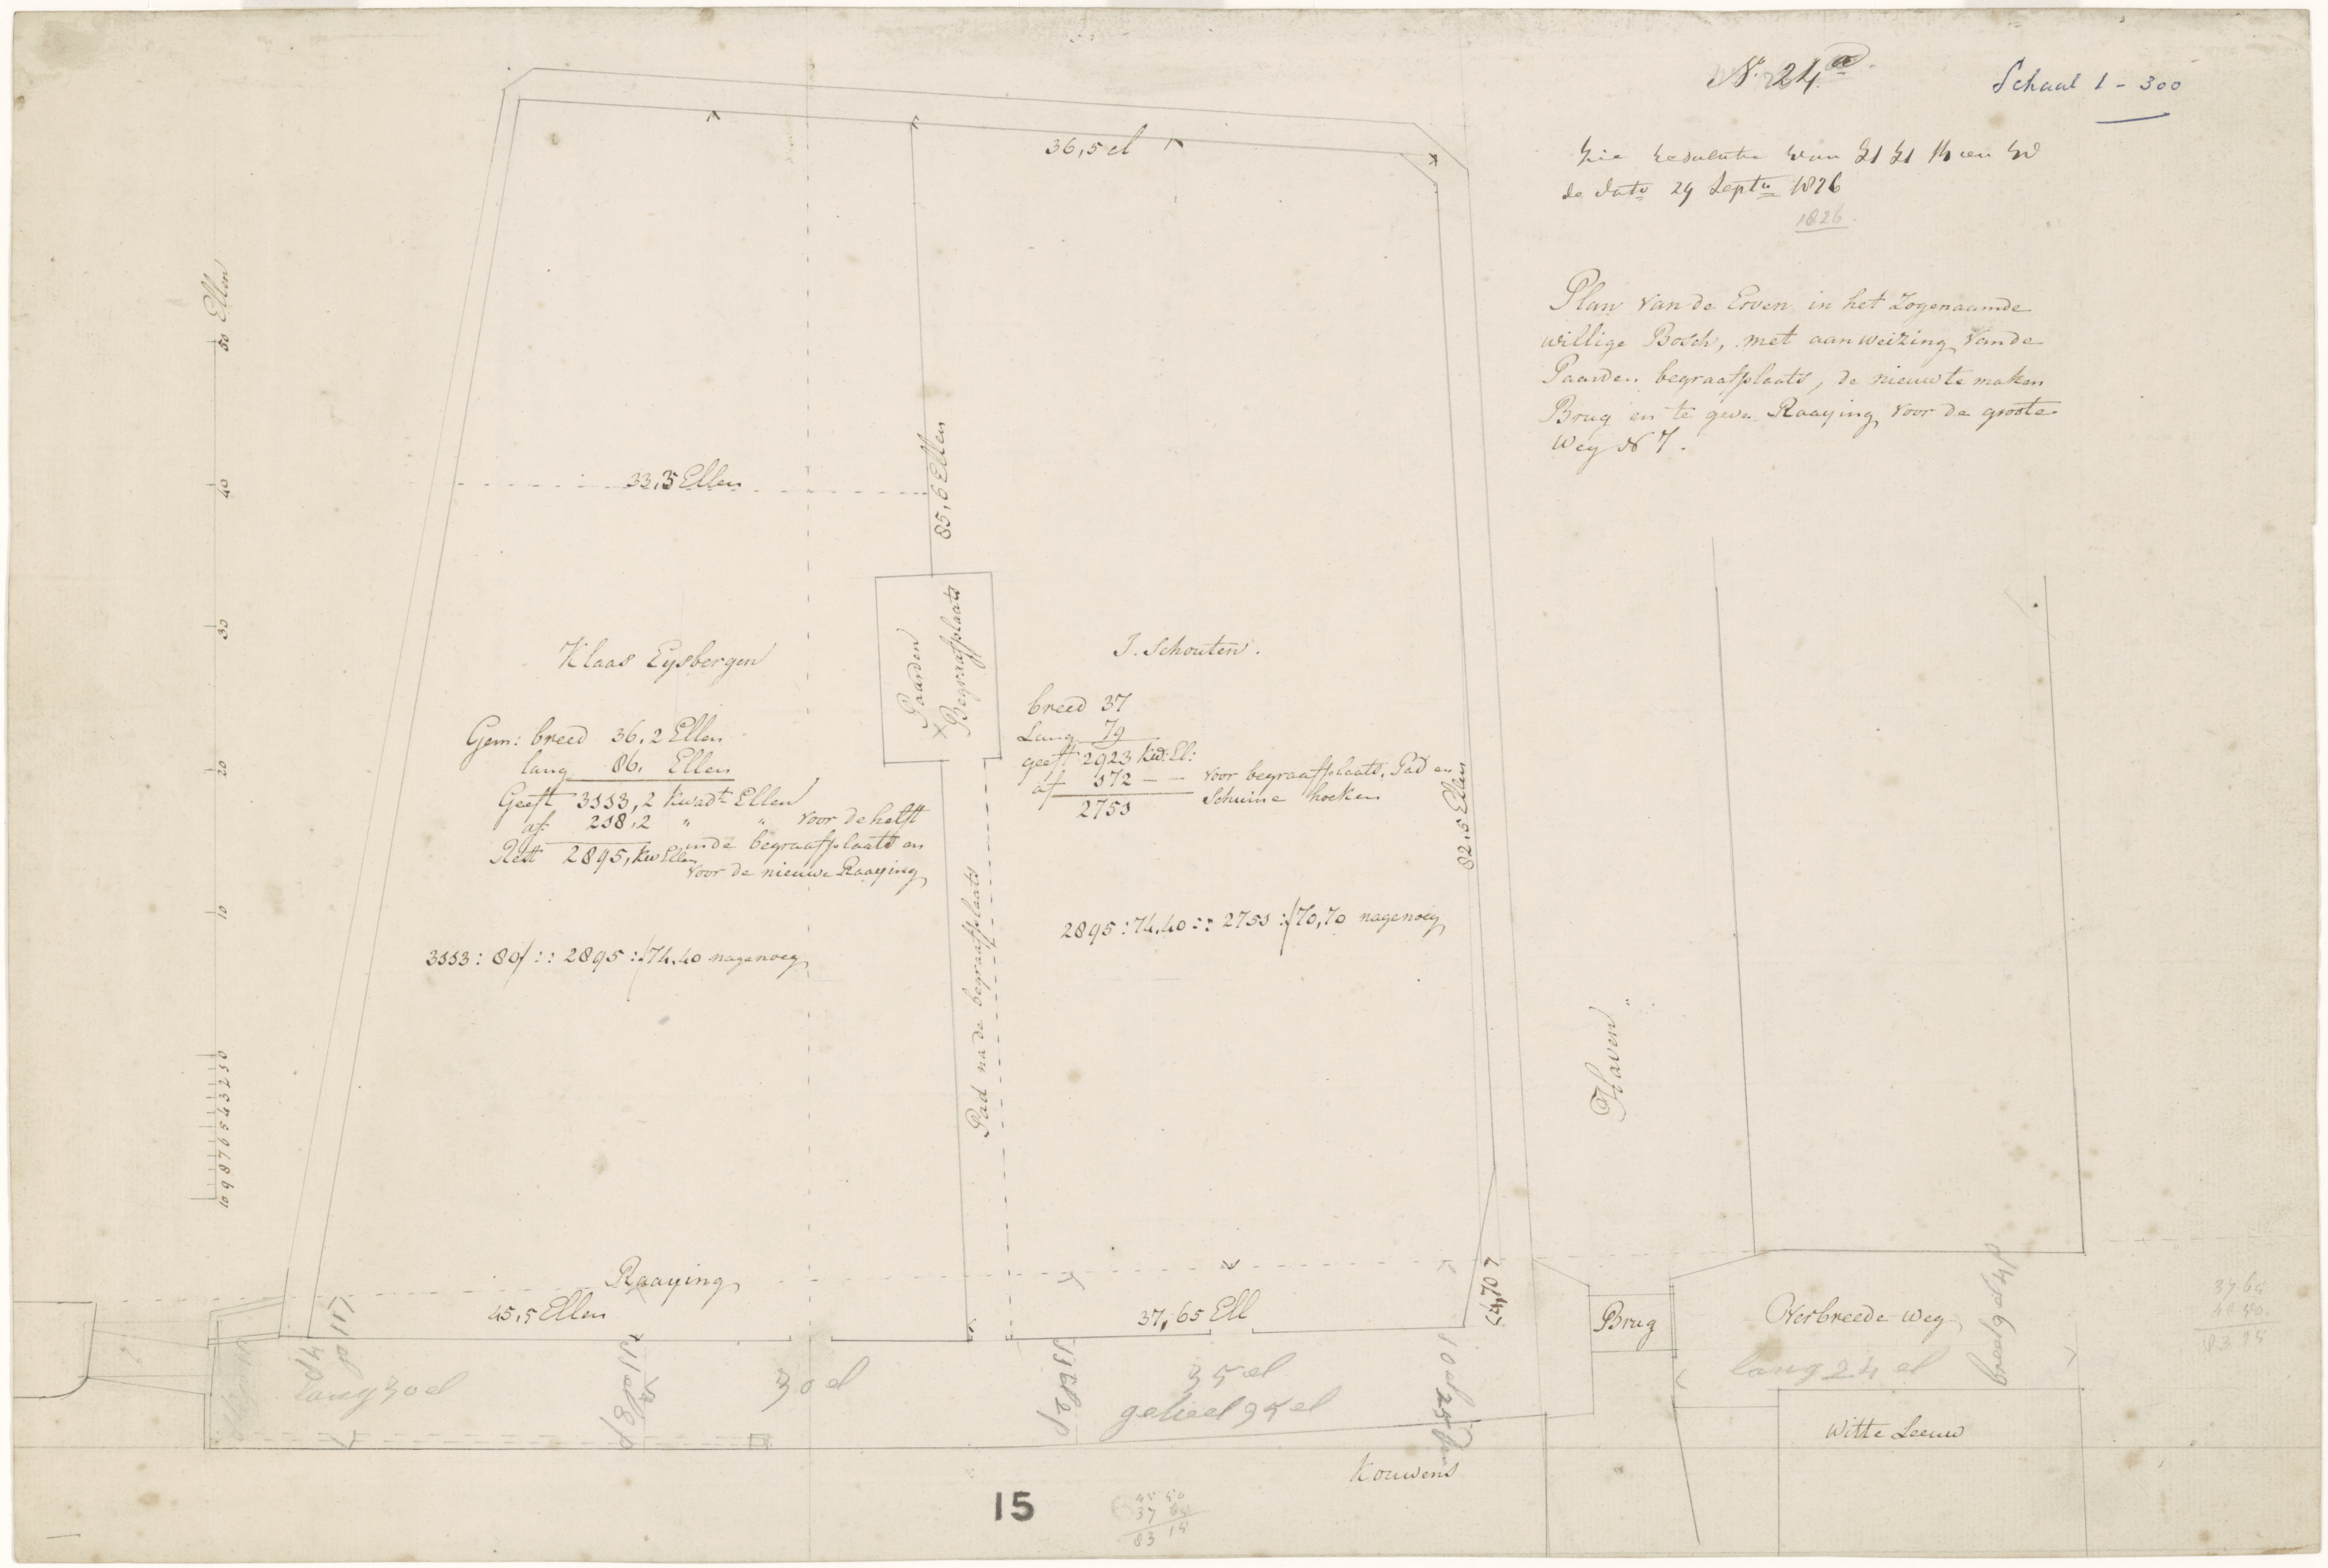 No. 24a
Schaal 1 - 300
de dato 29 Septr 1826
1826.
Plan van de Erven in het Zogenaamde
willige Bosch, met aanweizing van de
Paarden begraafplaats, de nieuw te maken
Brug en te geve Raaying voor de groote
Weg No 7.
36,5 el
50 Ellen
40
30
20
10
10 9 8 7 6 5 4 3 2 1 0
33,5 Ellen
85,6 Ellen
Paarden
Begraafplaats
Klaas Eysbergen
Gem: breed 36,2 Ellen
lang 86, Ellen
Geeft 3113,2 kwadt Ellen
af 218,2 " " voor de helft
in de begraafplaats en
Rest 2895, kw Ellen
voor de nieuwe Raaying
3113 : 80 / :: 2895 : / 74,40 nagenoeg
J. Schouten.
breed 37
Lang 79
geeft 2923 kw: El:
af 172 - - voor begraafplaats, Pad en
Schuine hoeken
2751
2895 : 74,40 :: 2751 : / 70,70 nagenoeg
82,5 Ellen
Pad na de begraafplaats
Haven
Raaying
45,5 Ellen
37,65 Ell
Brug
Verbreede weg
lang 24 el
lang 30 el
30 el
35 el
geheel 95 el
Witte Leeuw
Kouwens
15
45 50
37 65
83 15
37 65
45 50
83 15